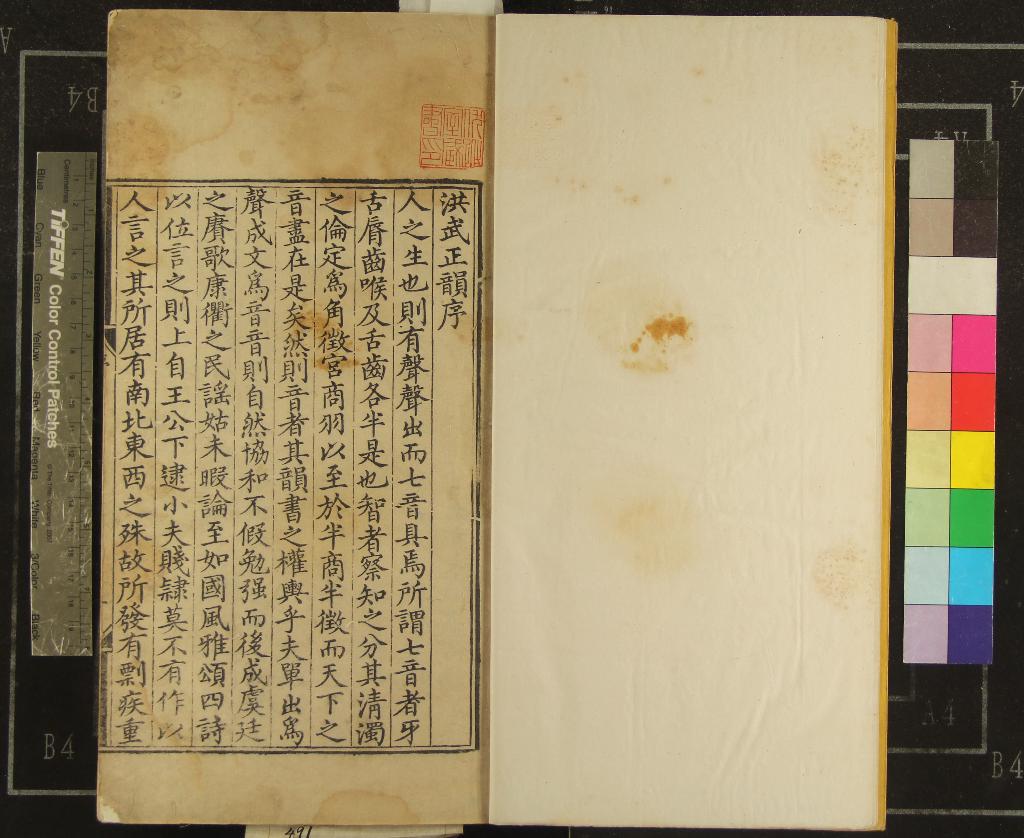 洪武正韻序
人之生也則有聲聲出而七音具焉所謂七音者牙
舌脣齒喉及舌齒各半是也智者察知之分其清濁
之倫定爲角徵宮商羽以至於半商半徵而天下之
音盡在是矣然則音者其韻書之權輿乎夫單出爲
聲成文爲音音則自然協和不假勉强而後成虞廷
之賡歌康衢之民謠姑未暇論至如國風雅頌四詩
以位言之則上自王公下逮小夫賤隸莫不有作以
人言之其所居有南北東西之殊故所發有剽疾重
TIFFEN Color Control Patches
Centimetres
Blue Cyan Green Yellow Red Magenta White 3/Color Black
B4
A4
B4
A4
B4
491